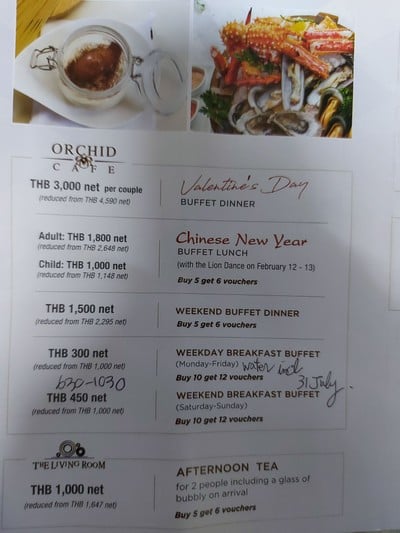 ORCHID
CAFE
THB 3,000 net per couple
(reduced from THB 4,590 net)
Valentine's Day
BUFFET DINNER
Adult: THB 1,800 net
(reduced from THB 2,648 net)
Child: THB 1,000 net
(reduced from THB 1,148 net)
Chinese New Year
BUFFET LUNCH
(with the Lion Dance on February 12 - 13)
Buy 5 get 6 vouchers
THB 1,500 net
(reduced from THB 2,295 net)
WEEKEND BUFFET DINNER
Buy 5 get 6 vouchers
THB 300 net
(reduced from THB 1,000 net)
WEEKDAY BREAKFAST BUFFET
(Monday-Friday) water incl
Buy 10 get 12 vouchers
31 July.
630-1030
THB 450 net
(reduced from THB 1,000 net)
WEEKEND BREAKFAST BUFFET
(Saturday-Sunday)
Buy 10 get 12 vouchers
THE LIVING ROOM
THB 1,000 net
(reduced from THB 1,647 net)
AFTERNOON TEA
for 2 people including a glass of
bubbly on arrival
Buy 5 get 6 vouchers